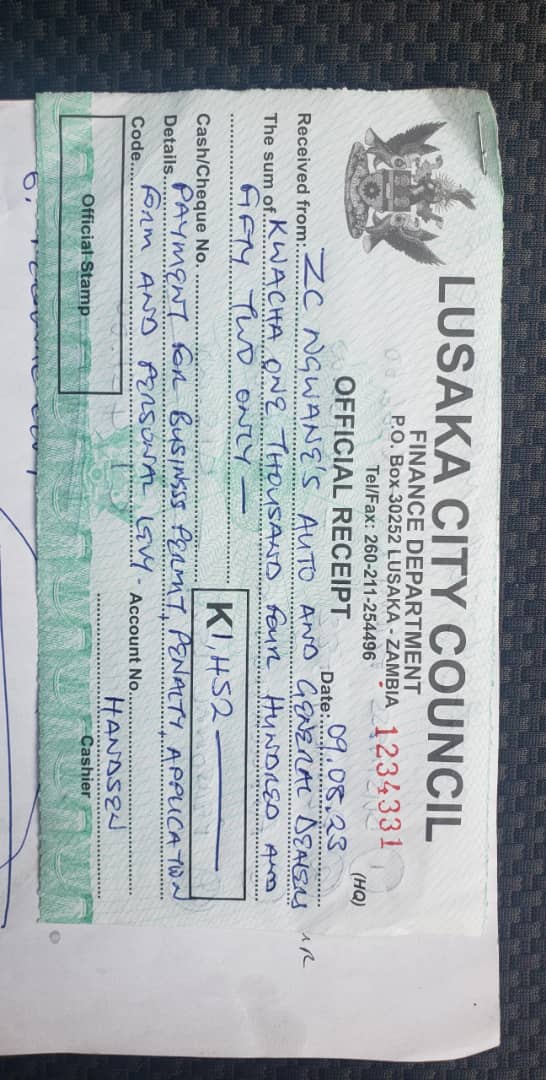 LUSAKA CITY COUNCIL
FINANCE DEPARTMENT
P.O. Box 30252 LUSAKA - ZAMBIA
1234331
Tel/Fax: 260-211-254496
(HQ)
OFFICIAL RECEIPT
Date: 09.08.23
Received from: ZC NGWANE'S AUTO AND GENERAL DEALERS
The sum of KWACHA ONE THOUSAND FOUR HUNDRED AND
FIFTY TWO ONLY —
K1,452 —
Cash/Cheque No.
Details. PAYMENT FOR BUSINESS PERMIT, PENALTY, APPLICATION
Code. FORM AND PERSONAL LEVY - Account No.
HANDSEN
Official Stamp
Cashier